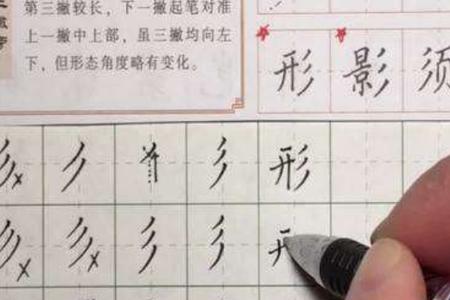 第三撇较长，下一撇起笔对准
上一撇中上部，虽三撇均向左
下，但形态角度略有变化。
形 影 须
彡 彡 彡 形
彡 彡 彡 彡